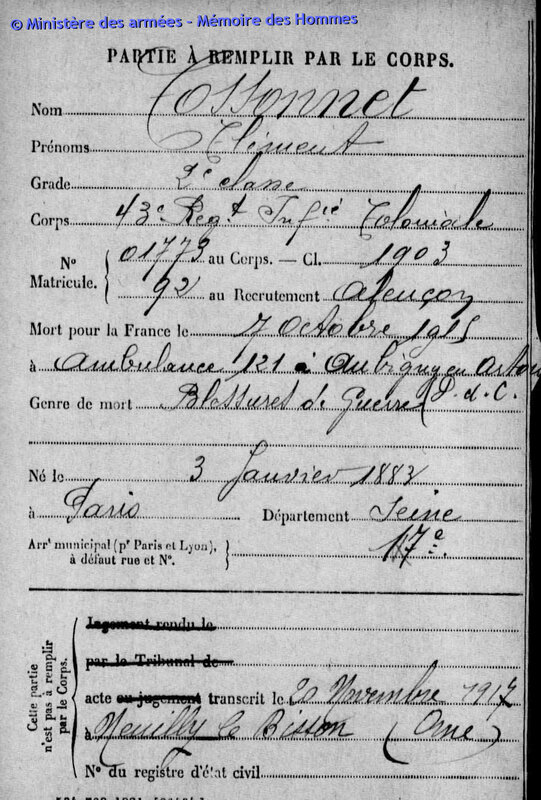 © Ministère des armées - Mémoire des Hommes
PARTIE À REMPLIR PAR LE CORPS.
Nom Tossonnet
Prénoms Clément
Grade 2e classe
Corps 43e Regt Infie Coloniale
No Matricule. 01773 au Corps. — Cl. 1903
92 au Recrutement Alençon
Mort pour la France le 7 Octobre 1915
à Ambulance 121 à Aubigny en Artois
Genre de mort Blessures de Guerre (P. d. C.
Né le 3 Janvier 1883
à Paris Département Seine
Arrt municipal (pr Paris et Lyon), à défaut rue et No. 17e.
Cette partie n'est pas à remplir par le Corps.
Jugement rendu le
par le Tribunal de
acte ou jugement transcrit le 20 Novembre 1917
à Neuilly le Bisson (Orne)
No du registre d'état civil